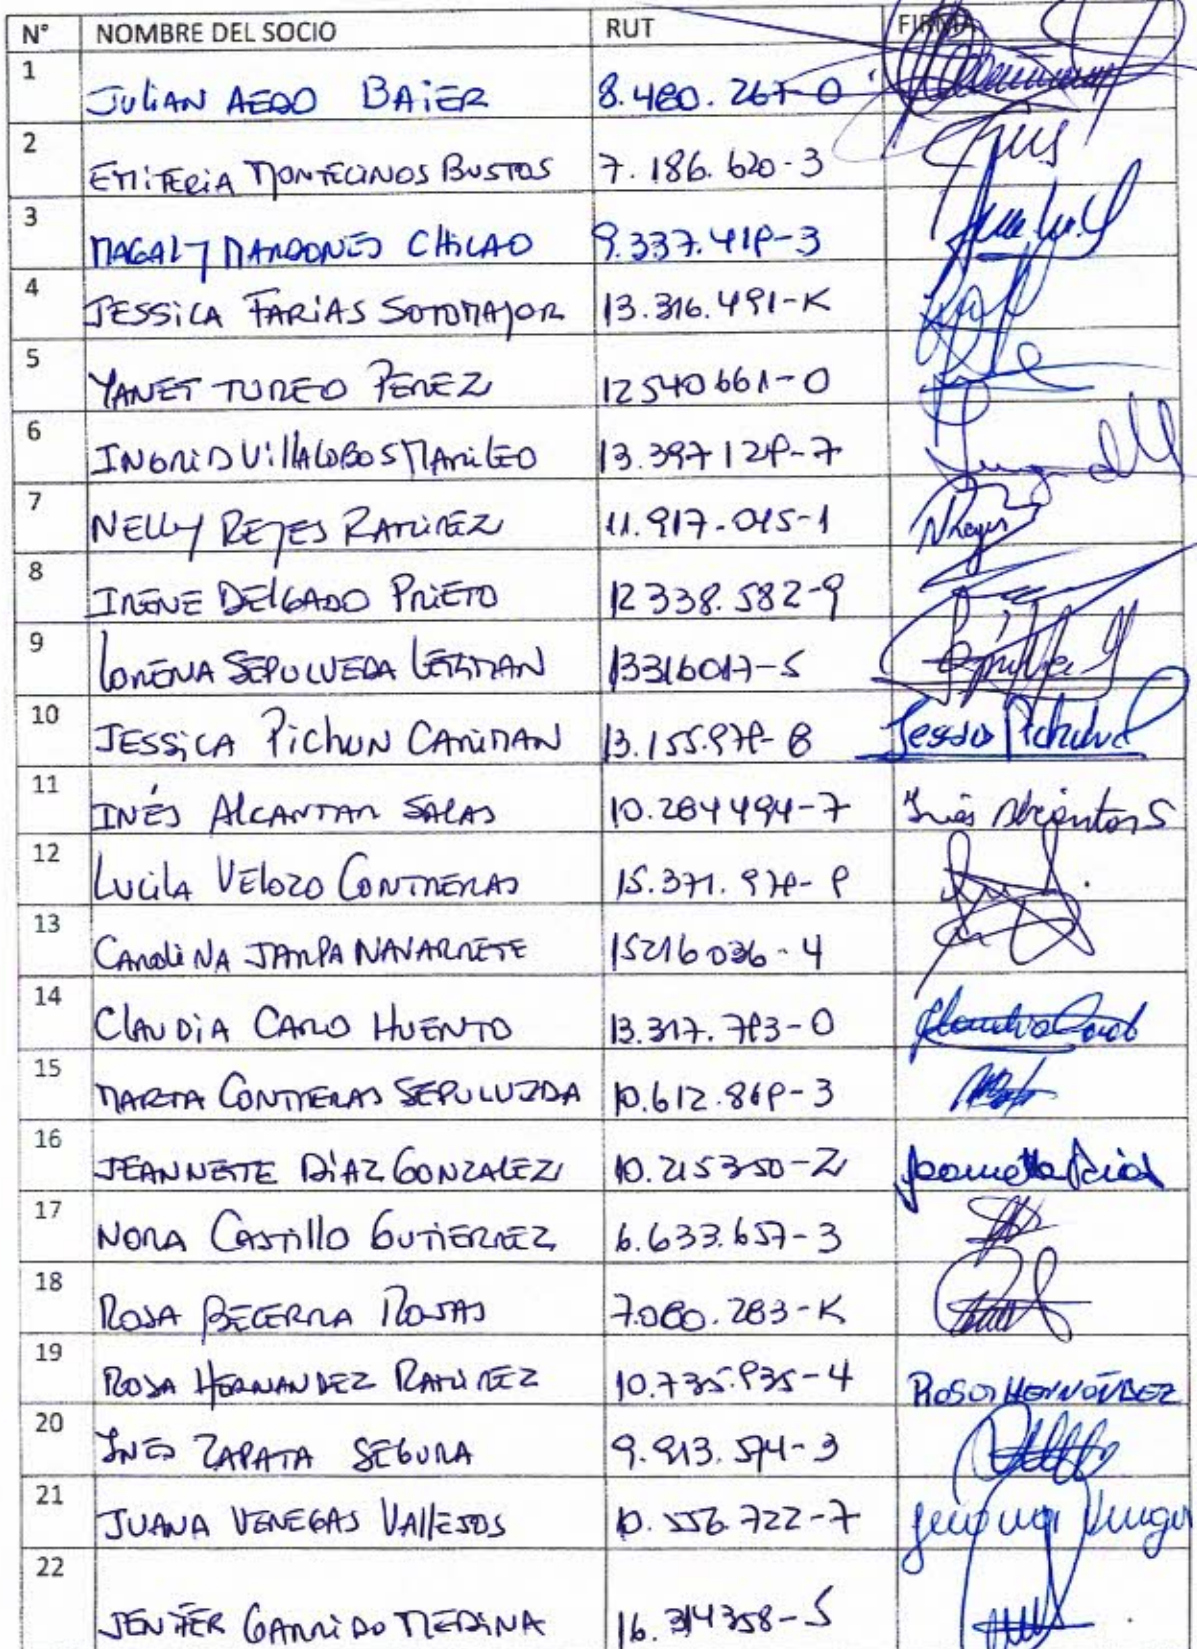 N° NOMBRE DEL SOCIO RUT FIRMA
1 JULIAN AEDO BAIER 8.480.267-0
2 EMITERIA MONTECINOS BUSTOS 7.186.620-3
3 MAGALY MARDONES CHICAO 9.337.418-3
4 JESSICA FARIAS SOTOMAYOR 13.316.491-K
5 YANET TUREO PEREZ 12540661-0
6 INGRID VILLALOBOS MARILEO 13.397128-7
7 NELLY REYES RAMIREZ 11.917.015-1
8 IRENE DELGADO PRIETO 12338.582-9
9 LORENA SEPULVEDA 13316017-5
10 JESSICA PICHUN CARIMAN 13.155.978-8
11 INÉS ALCANTAR SALAS 10.284494-7
12 LUCILA VELOZO CONTRERAS 15.371.978-8
13 CAROLINA JARPA NAVARRETE 15216036-4
14 CLAUDIA CARO HUENTO 13.317.783-0
15 MARTA CONTRERAS SEPULVEDA 10.612.868-3
16 JEANNETTE DIAZ GONZALEZ 10.215350-2
17 NORA CASTILLO GUTIERREZ 6.633.657-3
18 ROSA BECERRA ROJAS 7.080.283-K
19 ROSA HERNANDEZ RAMIREZ 10.735.835-4 ROSA HERNÁNDEZ
20 INES ZAPATA SEGURA 9.913.574-3
21 JUANA VENEGAS VALLEJOS 10.556.722-7
22 JENIFER GARRIDO MEDINA 16.314358-5